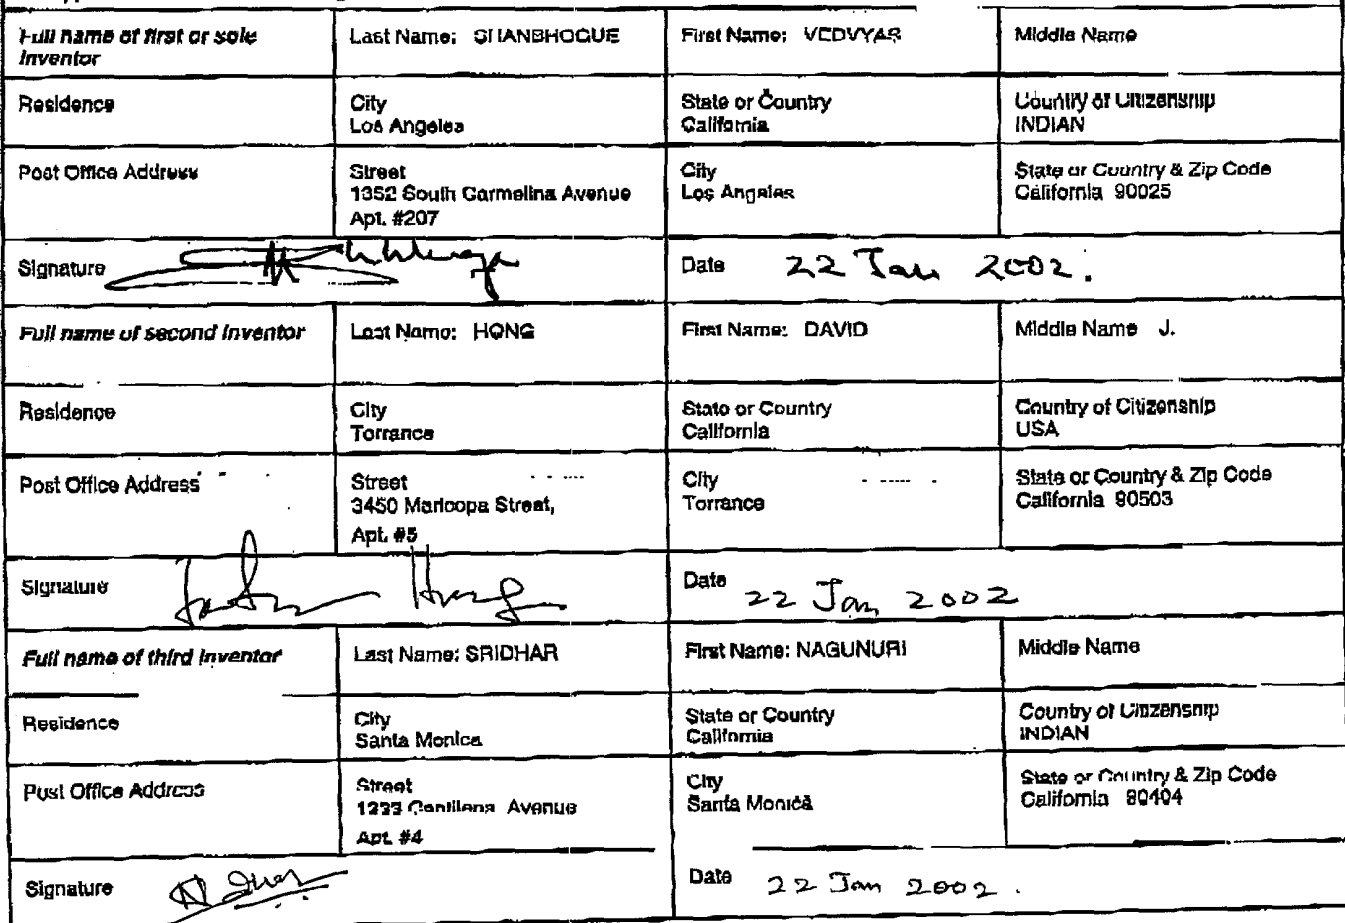 Full name of first or sole Inventor
Last Name: SHANBHOGUE
First Name: VEDVYAS
Middle Name
Residence
City
Los Angeles
State or Country
California
Country of Citizenship
INDIAN
Post Office Address
Street
1352 South Carmelina Avenue
Apt. #207
City
Los Angeles
State or Country & Zip Code
California 90025
Signature
Date 22 Jan 2002.
Full name of second Inventor
Last Name: HONG
First Name: DAVID
Middle Name J.
Residence
City
Torrance
State or Country
California
Country of Citizenship
USA
Post Office Address
Street
3450 Maricopa Street,
Apt. #5
City
Torrance
State or Country & Zip Code
California 90503
Signature
Date 22 Jan 2002
Full name of third Inventor
Last Name: SRIDHAR
First Name: NAGUNURI
Middle Name
Residence
City
Santa Monica
State or Country
California
Country of Citizenship
INDIAN
Post Office Address
Street
1233 Avenue
Apt. #4
City
Santa Monica
State or Country & Zip Code
California 90404
Signature
Date 22 Jan 2002.